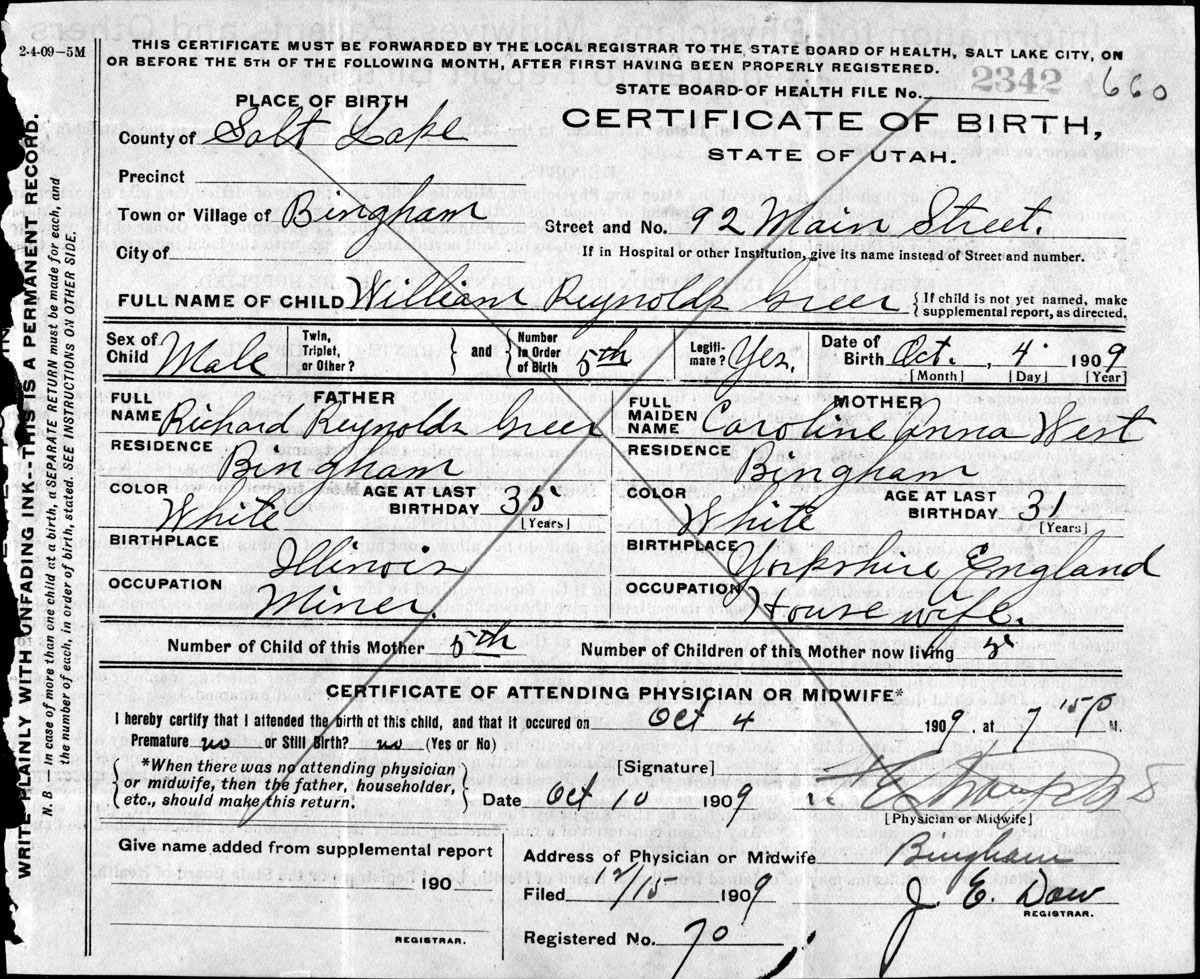 2-4-09-5M
THIS CERTIFICATE MUST BE FORWARDED BY THE LOCAL REGISTRAR TO THE STATE BOARD OF HEALTH, SALT LAKE CITY, ON
OR BEFORE THE 5TH OF THE FOLLOWING MONTH, AFTER FIRST HAVING BEEN PROPERLY REGISTERED.
STATE BOARD OF HEALTH FILE No. 2342 660
PLACE OF BIRTH
CERTIFICATE OF BIRTH,
STATE OF UTAH.
County of Salt Lake
Precinct
Town or Village of Bingham Street and No. 92 Main Street.
City of If in Hospital or other Institution, give its name instead of Street and number.
FULL NAME OF CHILD William Reynolds Greer { If child is not yet named, make
supplemental report, as directed.
Sex of Child Male Twin, Triplet, or Other? } and { Number in Order of Birth 5th Legiti-mate? Yes. Date of Birth Oct. 4 1909
[Month] [Day] [Year]
FATHER MOTHER
FULL NAME Richard Reynolds Greer FULL MAIDEN NAME Caroline Anna West
RESIDENCE Bingham RESIDENCE Bingham
COLOR White AGE AT LAST BIRTHDAY 35 [Years] COLOR White AGE AT LAST BIRTHDAY 31 [Years]
BIRTHPLACE Illinois BIRTHPLACE Yorkshire England
OCCUPATION Miner. OCCUPATION Housewife.
Number of Child of this Mother 5th Number of Children of this Mother now living 5
CERTIFICATE OF ATTENDING PHYSICIAN OR MIDWIFE*
I hereby certify that I attended the birth of this child, and that it occured on Oct 4 1909, at 7 50 M.
Premature no or Still Birth? no (Yes or No)
{ *When there was no attending physician
or midwife, then the father, householder,
etc., should make this return. }
[Signature]
Date Oct 10 1909
[Physician or Midwife]
Give name added from supplemental report
190
REGISTRAR.
Address of Physician or Midwife Bingham
Filed 1909 J. E. Dow
REGISTRAR.
Registered No. 70
WRITE PLAINLY WITH UNFADING INK-THIS IS A PERMANENT RECORD.
N. B — In case of more than one child at a birth, a SEPARATE RETURN must be made for each, and
the number of each, in order of birth, stated. SEE INSTRUCTIONS ON OTHER SIDE.